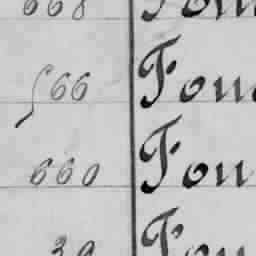 668 Fou
566 Fou
660 Fou
30 Fou